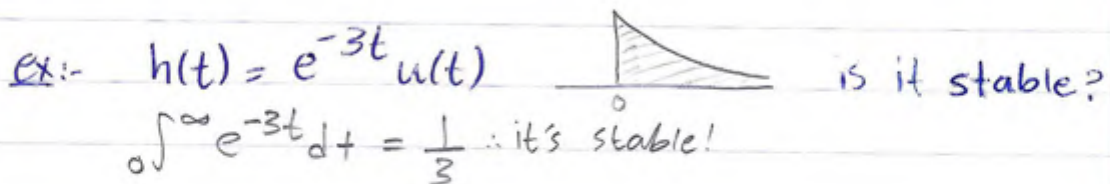 ex:- h(t) = e^{-3t} u(t) 0 is it stable?
₀∫^∞ e^{-3t} dt = 1/3 ∴ it's stable!